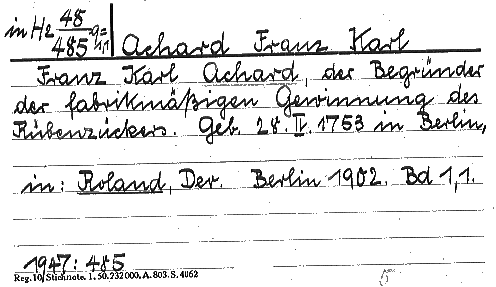 in Hz 48/485 g=1,1 Achard Franz Karl
Franz Karl Achard, der Begründer
der fabrikmäßigen Gewinnung des
Rübenzückers. Geb. 28. IV. 1753 in Berlin,
in: Roland, Der. Berlin 1902. Bd 1,1.
1947: 485
Reg. 10, Stichnote. 1. 50. 232000. A. 803. S. 4062
5